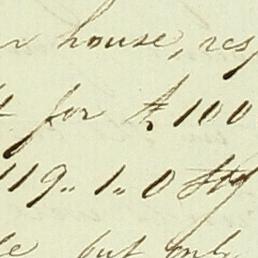 house, res
for £ 100
119.. 1.. 0 Stg
but only